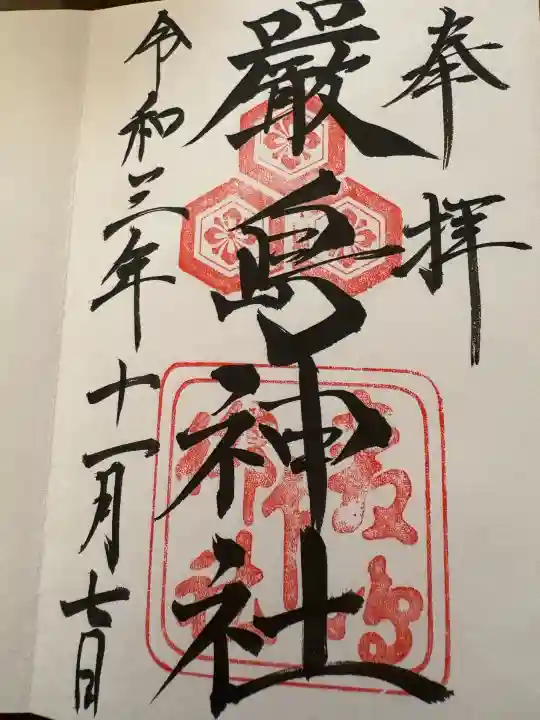 奉拝
嚴島神社
令和三年十一月七日